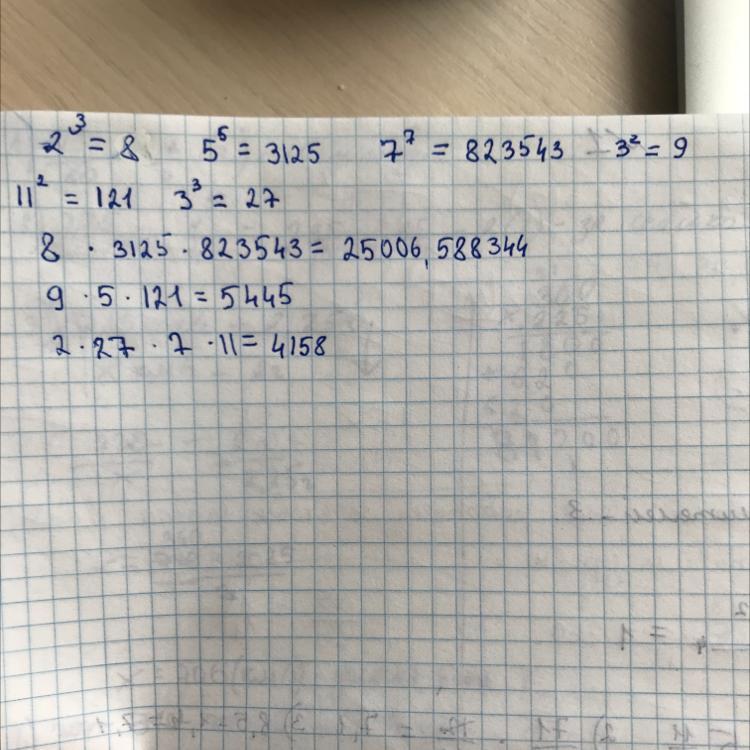 2³ = 8 5⁵ = 3125 7⁷ = 823543 3² = 9
11² = 121 3³ = 27
8 · 3125 · 823543 = 25006,588344
9 · 5 · 121 = 5445
2 · 27 · 7 · 11 = 4158